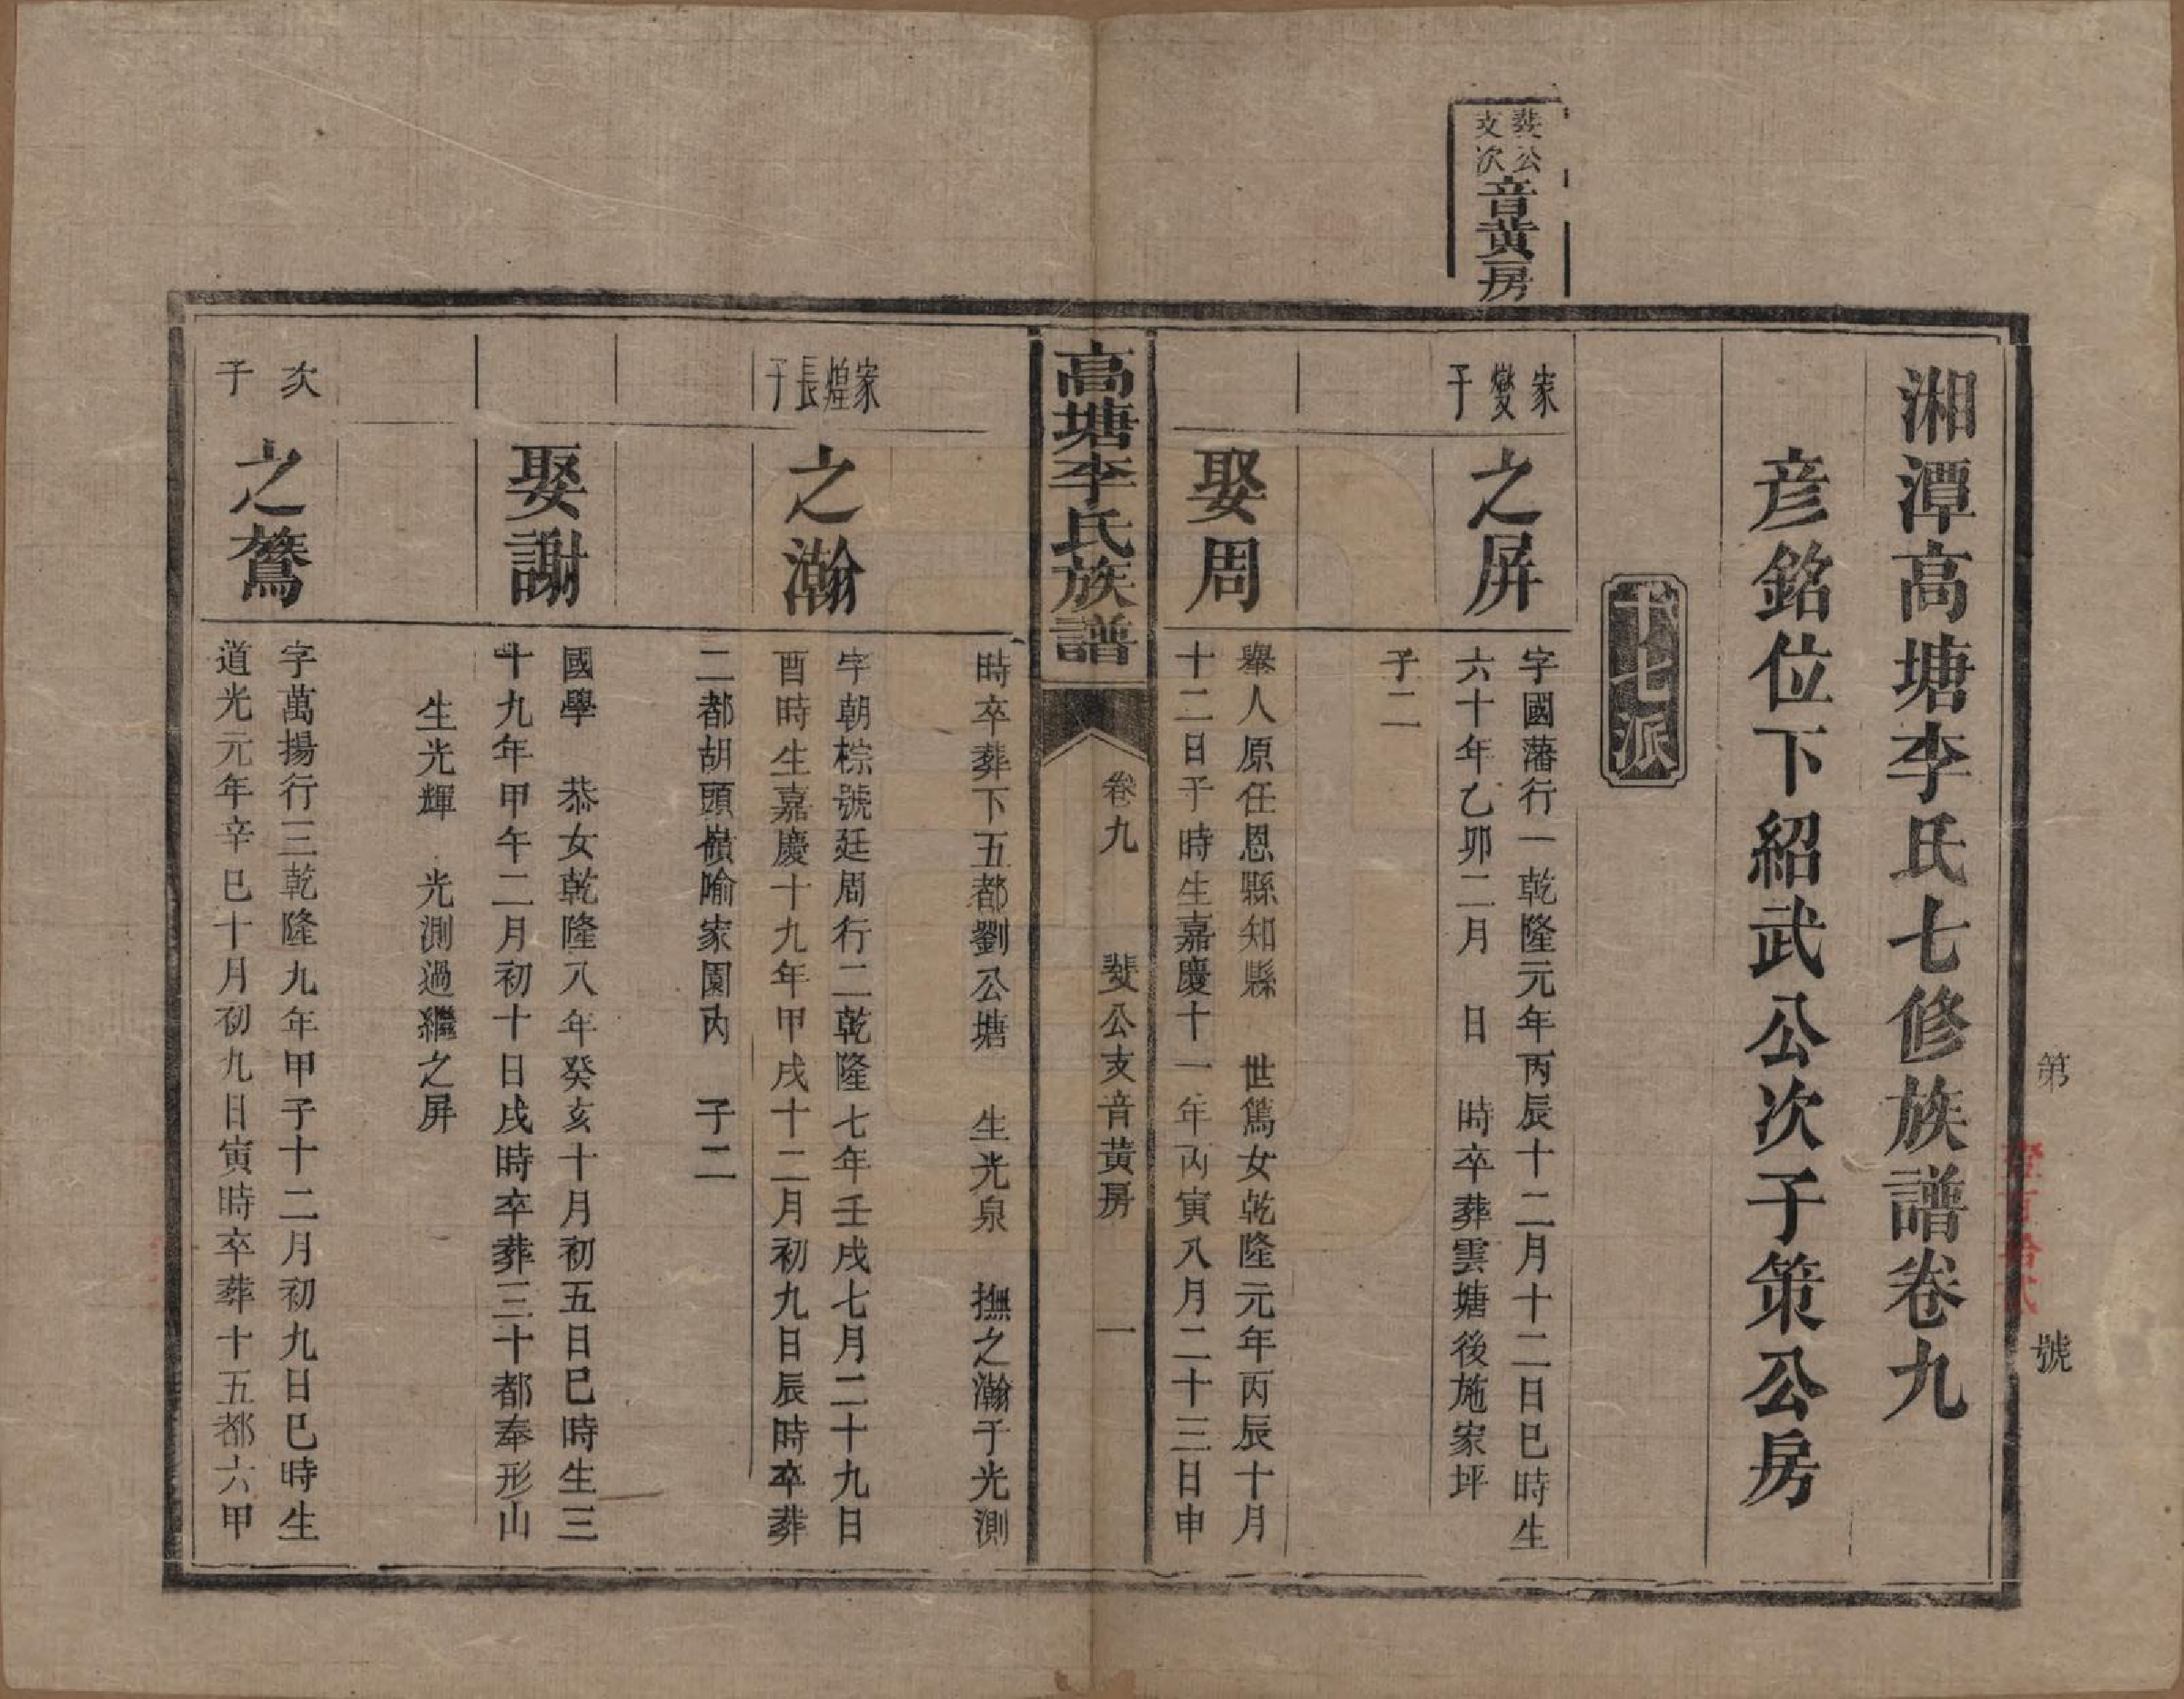 第 號
斐公支次音黄房
湘潭高塘李氏七修族譜卷九
彦銘位下紹武公次子策公房
十七派
家燮子
之屏
字國藩行一乾隆元年丙辰十二月十二日巳時生
六十年乙卯二月 日 時卒葬雲塘後施家坪
子二
娶周
舉人原任恩縣知縣 世篤女乾隆元年丙辰十月
十二日子時生嘉慶十一年丙寅八月二十三日申
高塘李氏族譜
卷九 斐公支音黄房 一
時卒葬下五都劉公塘 生光泉 撫之瀚子光測
家煌長子
之瀚
字朝棕號廷周行二乾隆七年壬戌七月二十九日
酉時生嘉慶十九年甲戌十二月初九日辰時卒葬
二都胡頭嶺喻家園內 子二
娶謝
國學 恭女乾隆八年癸亥十月初五日巳時生三
十九年甲午二月初十日戌時卒葬三十都奉形山
生光輝 光測過繼之屏
次子
之鶩
字萬揚行三乾隆九年甲子十二月初九日巳時生
道光元年辛巳十月初九日寅時卒葬十五都六甲